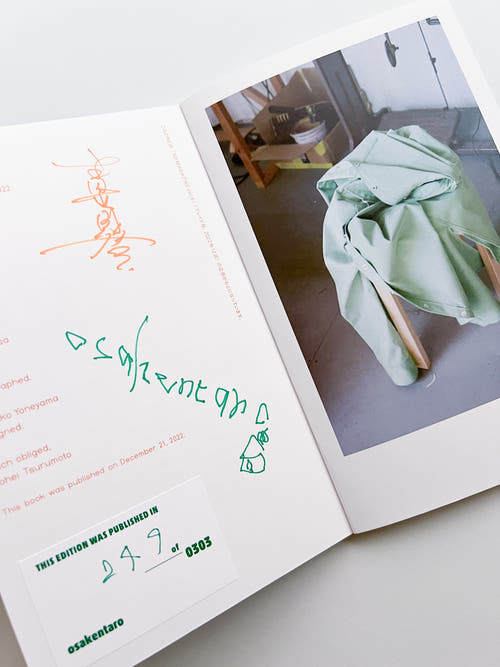 2022.
aphed.
ko Yoneyama
gned.
ch obliged,
ohei Tsurumoto
This book was published on December 21, 2022.
osakentaro
THIS EDITION WAS PUBLISHED IN
249 of 0303
osakentaro